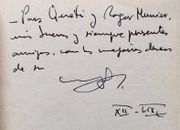 — Para Queti y Roger Munier,
mis buenos y siempre presentes
amigos, con los mejores deseos
de su
XII -